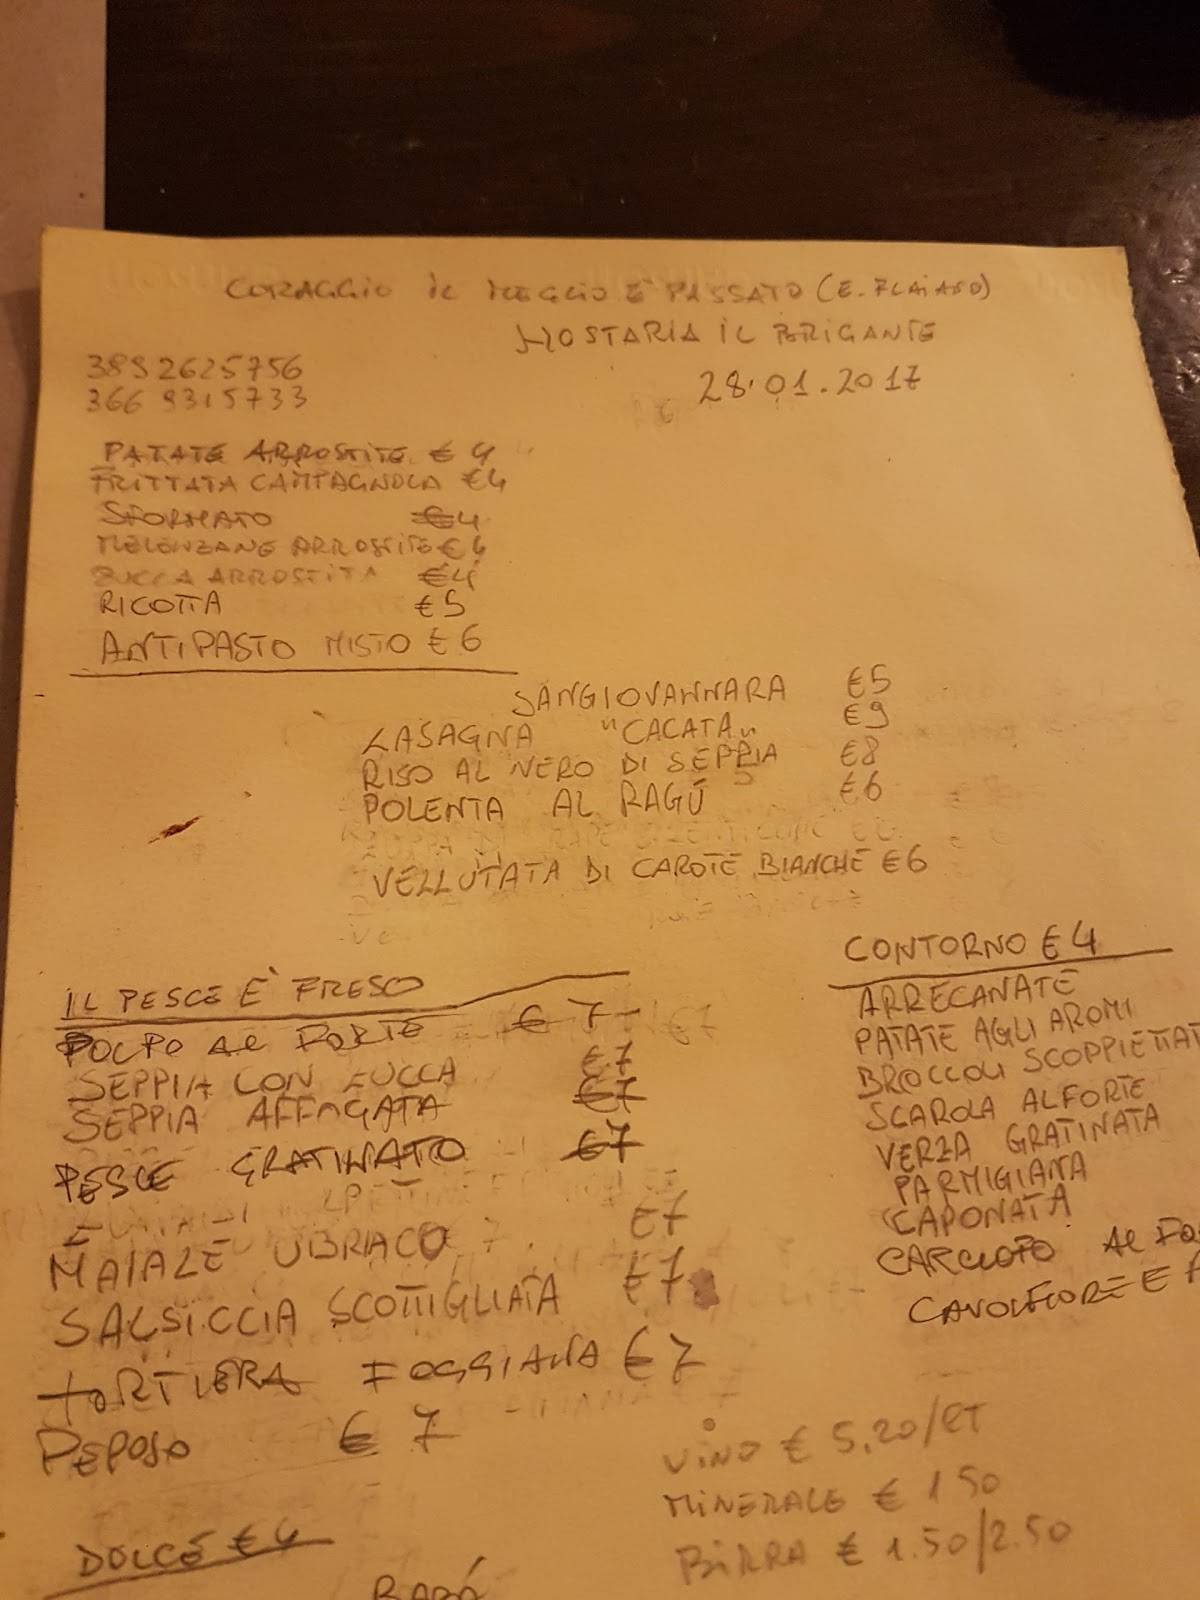 CORAGGIO IL MEGLIO È PASSATO (E. FLAIANO)
HOSTARIA IL BRIGANTE
28.01.2017
3892625756
366 9315733
PATATE ARROSTITE € 4
FRITTATA CAMPAGNOLA €4
SFORMATO €4
MELENZANE ARROSTITE €4
ZUCCA ARROSTITA €4
RICOTTA €5
ANTIPASTO MISTO € 6
SANGIOVANNARA €5
LASAGNA "CACATA" €9
RISO AL NERO DI SEPPIA €8
POLENTA AL RAGÚ €6
VELLUTATA DI CAROTE BIANCHE €6
IL PESCE E' FRESCO
POLPO AL FORTE € 7
SEPPIA CON ZUCCA €7
SEPPIA AFFOGATA €7
PESCE GRATINATO €7
MAIALE UBRIACO €7
SALSICCIA SCOTTIGLIATA €7
TORTIERA FOGGIANA € 7
PEPOSO € 7
CONTORNO € 4
ARRECANATE
PATATE AGLI AROMI
BROCCOLI SCOPPIETTAT
SCAROLA AL FORTE
VERZA GRATINATA
PARMIGIANA
CAPONATA
CARCIOFO AL FO
CAVOLFIORE E
VINO € 5,20/LT
MINERALE € 1 50
BIRRA € 1.50/2.50
DOLCE € 4
BABÁ